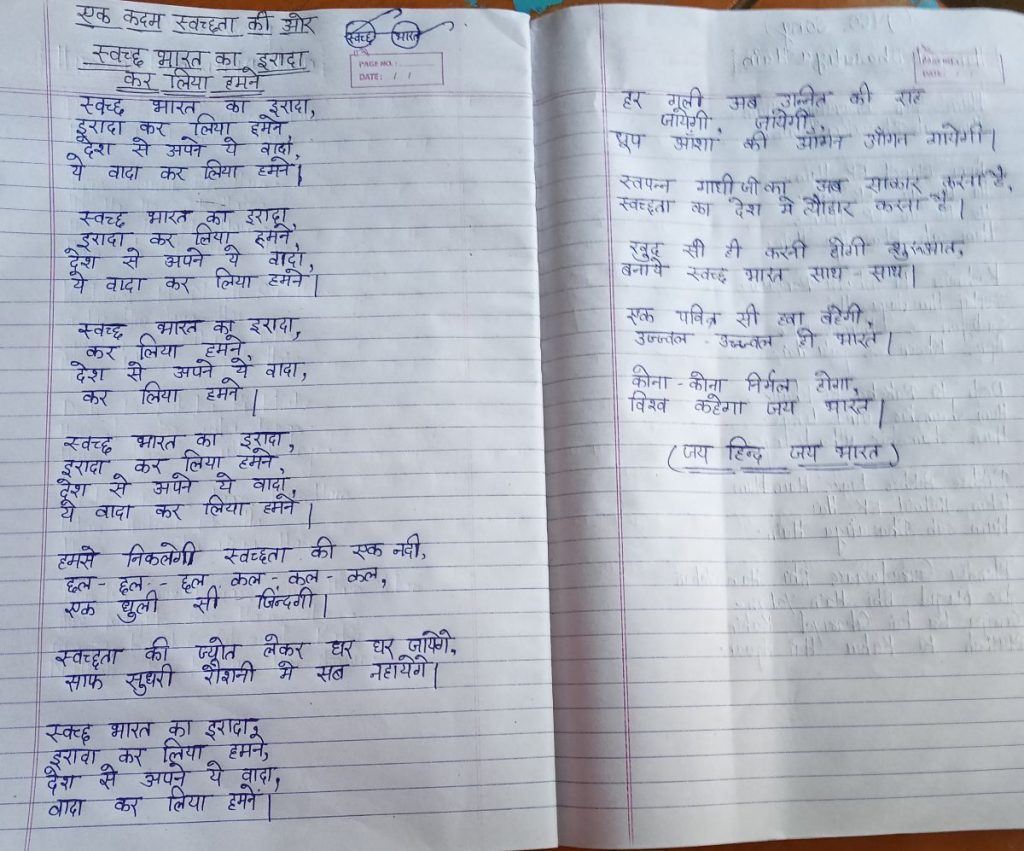 एक कदम स्वच्छता की ओर
स्वच्छ भारत
स्वच्छ भारत का इरादा
कर लिया हमने
PAGE NO.:
DATE: / /
स्वच्छ भारत का इरादा,
इरादा कर लिया हमने,
देश से अपने ये वादा,
ये वादा कर लिया हमने।
स्वच्छ भारत का इरादा,
इरादा कर लिया हमने,
देश से अपने ये वादा,
ये वादा कर लिया हमने।
स्वच्छ भारत का इरादा,
कर लिया हमने,
देश से अपने ये वादा,
कर लिया हमने।
स्वच्छ भारत का इरादा,
इरादा कर लिया हमने,
देश से अपने ये वादा,
ये वादा कर लिया हमने।
हमसे निकलेगी स्वच्छता की एक नदी,
छल-छल-छल कल-कल-कल,
एक धुली सी जिंन्दगी।
स्वच्छता की ज्योत लेकर घर घर जांयेगे,
साफ सुधरी रौशनी मे सब नहायेगे।
स्वच्छ भारत का इरादा,
इरादा कर लिया हमने,
देश से अपने ये वादा,
वादा कर लिया हमने।
हर गली अब उन्नित की राह
जांयेगी, जांयेगी,
धूप आँशा की आँगन आँगन गायेगी।
स्वपन्न गांधी जी का अब साकार करना है,
स्वच्छता का देश मे त्यौहार करना है।
खुद सी ही करनी होगी शुरूआत,
बनाये स्वच्छ भारत साथ-साथ।
एक पवित्र सी हवा बहेगी,
उज्ज्वल-उज्ज्वल हो भारत।
कोना-कोना निर्मल होगा,
विश्व कहेगा जय भारत।
(जय हिन्द जय भारत)